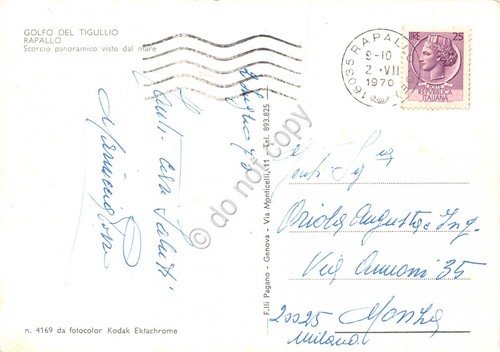 GOLFO DEL TIGULLIO
RAPALLO
Scorcio panoramico visto dal mare
LIRE 25
RAPALLO
9-10
2 VII
1970
REPUBBLICA
ITALIANA
do not copy
Tanti cari saluti
F.lli Pagano - Genova - Via Monticelli, 11 - Tel. 893.825
Augusta e Ing.
Via Ammoni 35
20025 Monza
Milano
n. 4169 da fotocolor Kodak Ektachrome